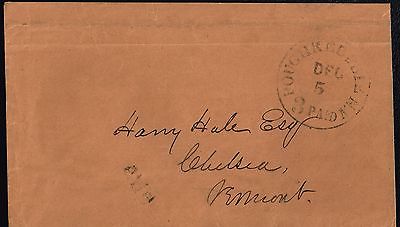 POUGHKEEPSIE N.Y.
DEC
5
3 PAID
Harry Hale Esq
Chelsea,
Vermont.
PAID